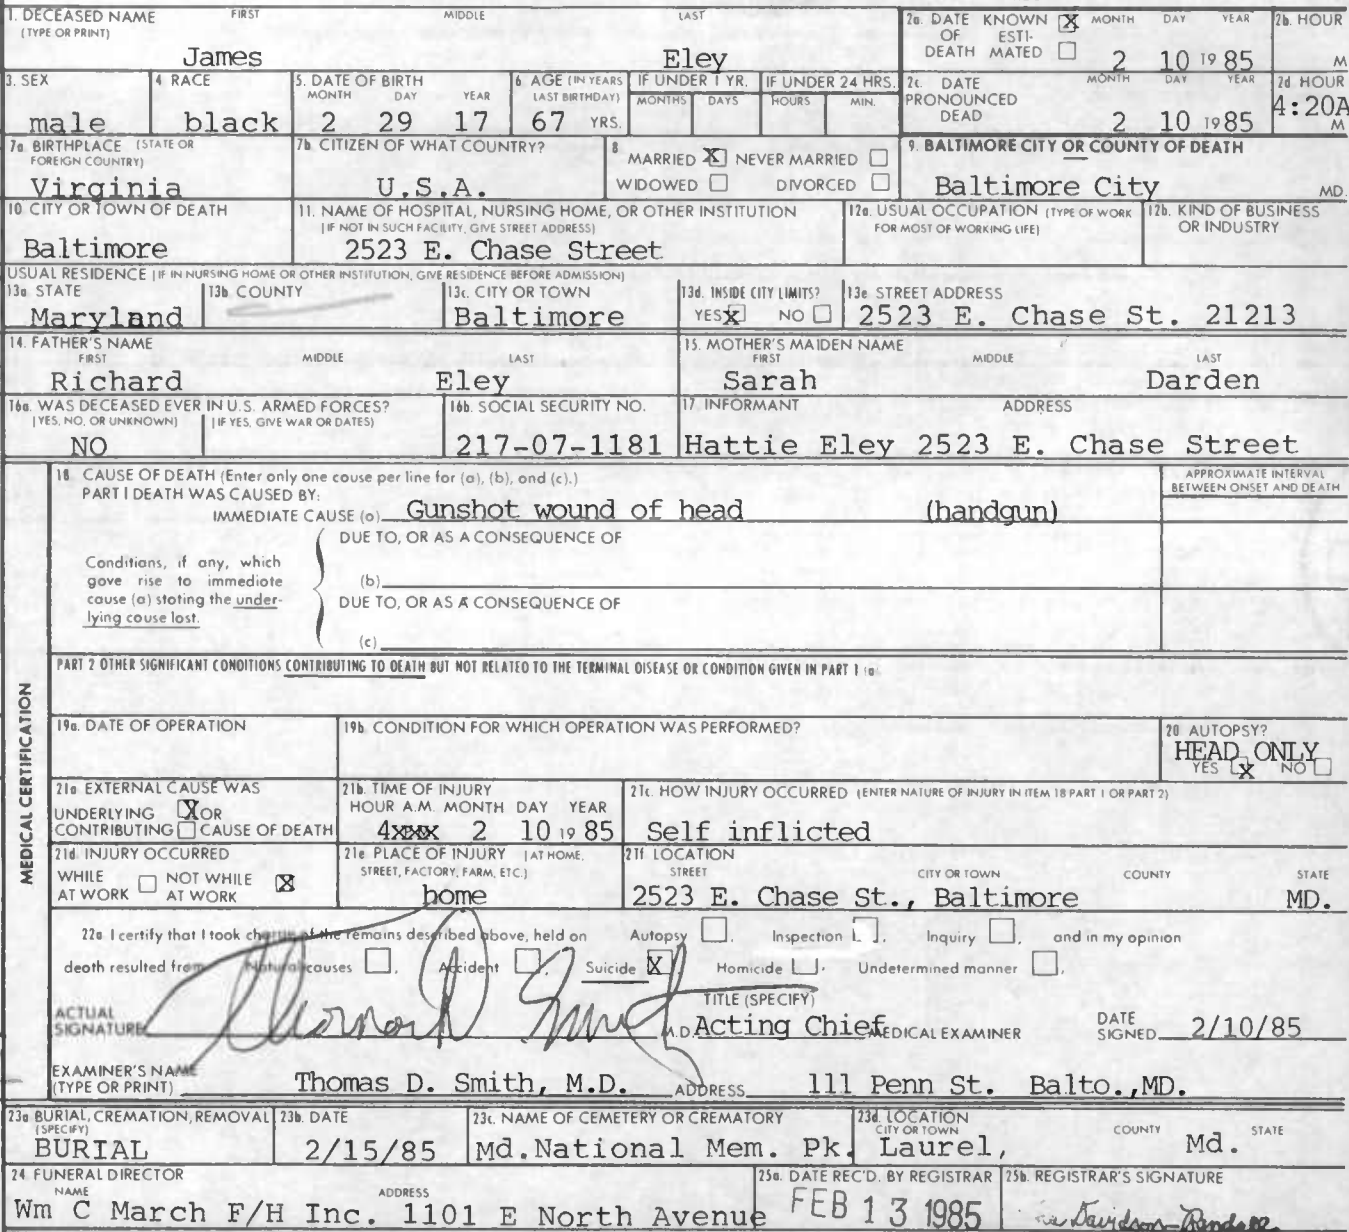 1. DECEASED NAME (TYPE OR PRINT) FIRST MIDDLE LAST
James Eley
2a. DATE OF DEATH KNOWN X ESTIMATED MONTH DAY YEAR
2 10 1985
2b. HOUR M
3. SEX
male
4 RACE
black
5. DATE OF BIRTH MONTH DAY YEAR
2 29 17
6 AGE (IN YEARS LAST BIRTHDAY)
67 YRS.
IF UNDER 1 YR. MONTHS DAYS
IF UNDER 24 HRS. HOURS MIN.
2c. DATE PRONOUNCED DEAD MONTH DAY YEAR
2 10 1985
2d HOUR
4:20A M
7a BIRTHPLACE (STATE OR FOREIGN COUNTRY)
Virginia
7b. CITIZEN OF WHAT COUNTRY?
U.S.A.
8 MARRIED X NEVER MARRIED
WIDOWED DIVORCED
9. BALTIMORE CITY OR COUNTY OF DEATH
Baltimore City MD.
10 CITY OR TOWN OF DEATH
Baltimore
11. NAME OF HOSPITAL, NURSING HOME, OR OTHER INSTITUTION
(IF NOT IN SUCH FACILITY, GIVE STREET ADDRESS)
2523 E. Chase Street
12a. USUAL OCCUPATION (TYPE OF WORK FOR MOST OF WORKING LIFE)
12b. KIND OF BUSINESS OR INDUSTRY
USUAL RESIDENCE (IF IN NURSING HOME OR OTHER INSTITUTION, GIVE RESIDENCE BEFORE ADMISSION)
13a STATE
Maryland
13b. COUNTY
13c. CITY OR TOWN
Baltimore
13d. INSIDE CITY LIMITS?
YES X NO
13e STREET ADDRESS
2523 E. Chase St. 21213
14. FATHER'S NAME FIRST MIDDLE LAST
Richard Eley
15. MOTHER'S MAIDEN NAME FIRST MIDDLE LAST
Sarah Darden
16a. WAS DECEASED EVER IN U.S. ARMED FORCES?
(YES, NO, OR UNKNOWN) (IF YES, GIVE WAR OR DATES)
NO
16b. SOCIAL SECURITY NO.
217-07-1181
17. INFORMANT ADDRESS
Hattie Eley 2523 E. Chase Street
MEDICAL CERTIFICATION
18. CAUSE OF DEATH (Enter only one couse per line for (a), (b), and (c).)
APPROXIMATE INTERVAL BETWEEN ONSET AND DEATH
PART I DEATH WAS CAUSED BY:
IMMEDIATE CAUSE (a) Gunshot wound of head (handgun)
DUE TO, OR AS A CONSEQUENCE OF
Conditions, if any, which
gove rise to immediote
cause (a) stoting the under-
lying couse lost.
(b)
DUE TO, OR AS A CONSEQUENCE OF
(c)
PART 2 OTHER SIGNIFICANT CONDITIONS CONTRIBUTING TO DEATH BUT NOT RELATED TO THE TERMINAL DISEASE OR CONDITION GIVEN IN PART 1 (a)
19a. DATE OF OPERATION
19b. CONDITION FOR WHICH OPERATION WAS PERFORMED?
20 AUTOPSY?
HEAD ONLY
YES X NO
21a EXTERNAL CAUSE WAS
UNDERLYING X OR
CONTRIBUTING CAUSE OF DEATH
21b. TIME OF INJURY
HOUR A.M. MONTH DAY YEAR
4xxxx 2 10 1985
21c. HOW INJURY OCCURRED (ENTER NATURE OF INJURY IN ITEM 18 PART 1 OR PART 2)
Self inflicted
21d. INJURY OCCURRED
WHILE AT WORK NOT WHILE AT WORK X
21e PLACE OF INJURY (AT HOME, STREET, FACTORY, FARM, ETC.)
home
21f LOCATION STREET CITY OR TOWN COUNTY STATE
2523 E. Chase St., Baltimore MD.
22a I certify that I took charge of the remains described above, held on Autopsy , Inspection , Inquiry , and in my opinion
death resulted from Natural causes , Accident , Suicide X Homicide , Undetermined manner ,
ACTUAL SIGNATURE Thomas D Smith M.D.
TITLE (SPECIFY)
Acting Chief MEDICAL EXAMINER
DATE SIGNED 2/10/85
EXAMINER'S NAME (TYPE OR PRINT) Thomas D. Smith, M.D. ADDRESS 111 Penn St. Balto.,MD.
23a BURIAL, CREMATION, REMOVAL (SPECIFY)
BURIAL
23b. DATE
2/15/85
23c. NAME OF CEMETERY OR CREMATORY
Md.National Mem. Pk.
23d. LOCATION CITY OR TOWN COUNTY STATE
Laurel, Md.
24 FUNERAL DIRECTOR NAME ADDRESS
Wm C March F/H Inc. 1101 E North Avenue
25a. DATE REC'D. BY REGISTRAR
FEB 13 1985
25b. REGISTRAR'S SIGNATURE
Davidson-Randall